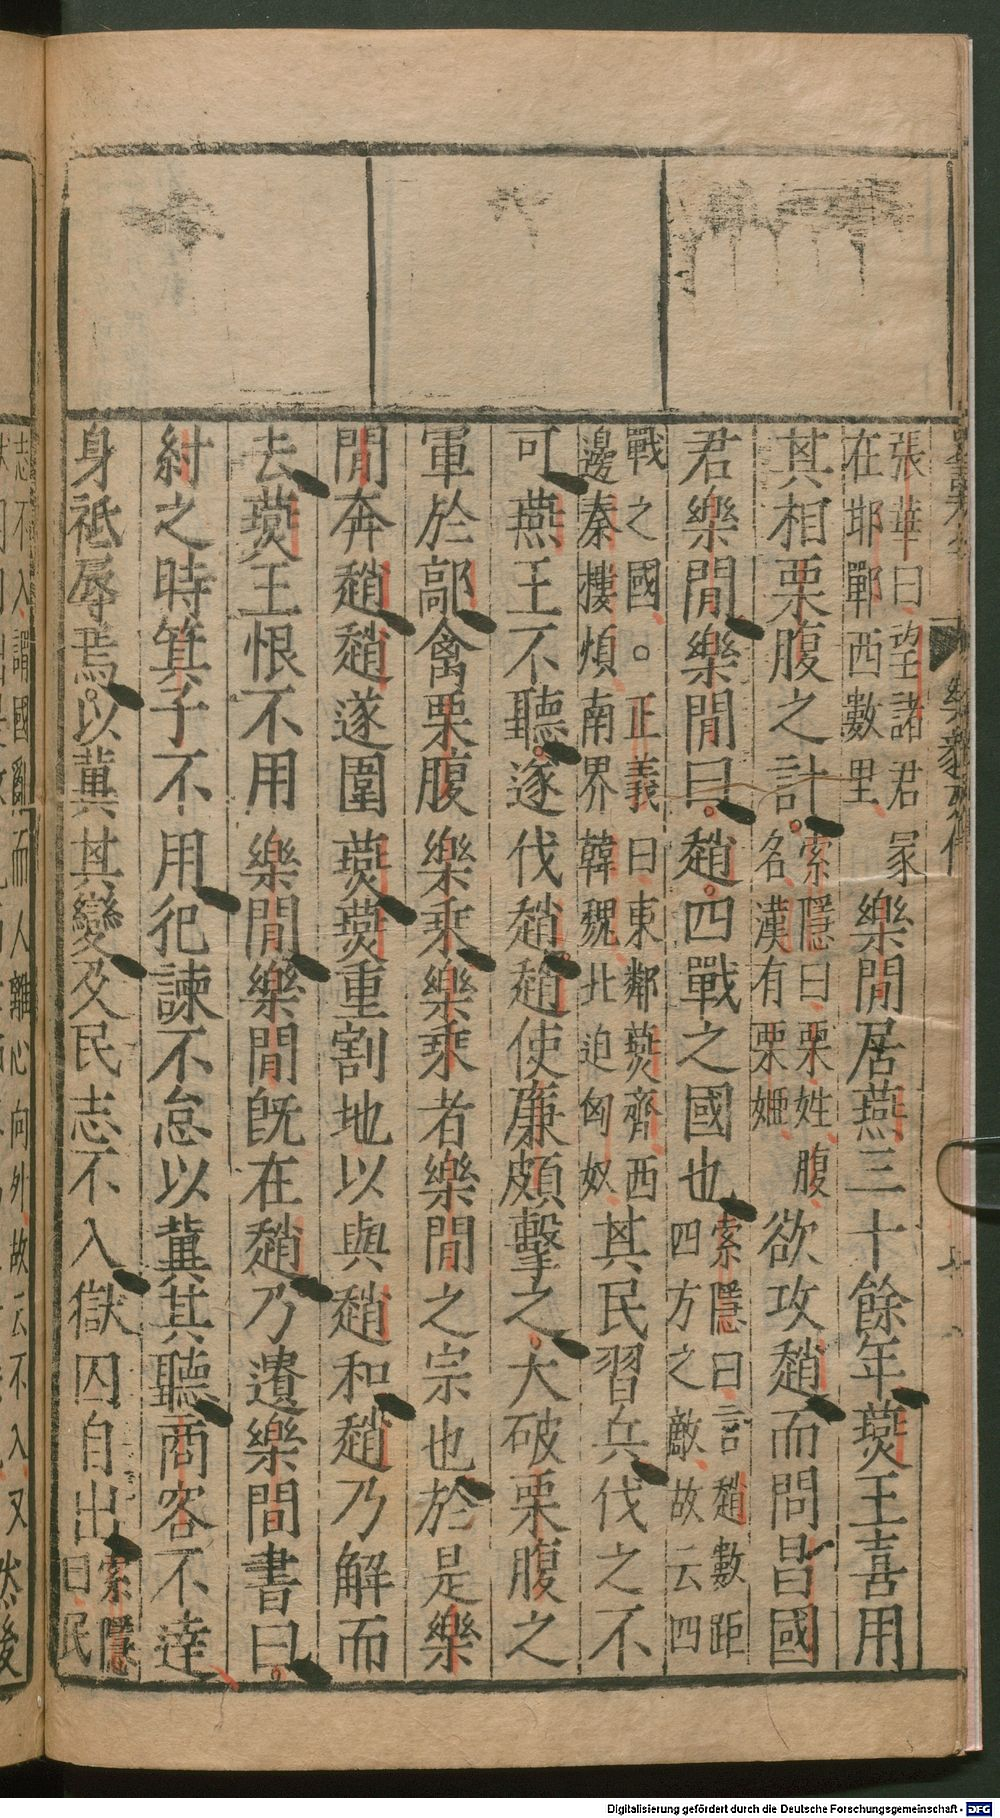 張華曰望諸君冢
在邯鄲西數里
樂閒居燕三十餘年燕王喜用
其相栗腹之計
索隱曰栗姓腹
名漢有栗姬
欲攻趙而問昌國
君樂閒樂閒曰趙四戰之國也
索隱曰言趙數距
四方之敵故云四
戰之國。正義曰東鄰燕齊西
邊秦樓煩南界韓魏北迫匈奴
其民習兵伐之不
可燕王不聽遂伐趙趙使廉頗擊之大破栗腹之
軍於鄗禽栗腹樂乘樂乘者樂閒之宗也於是樂
閒奔趙趙遂圍燕燕重割地以與趙和趙乃解而
去燕王恨不用樂閒樂閒既在趙乃遺樂閒書曰
紂之時箕子不用犯諫不怠以冀其聽商容不達
身祇辱焉以冀其變及民志不入獄囚自出
索隱
曰民
志不入謂國亂而人離心向外故云不入又
然後
Digitalisierung gefördert durch die Deutsche Forschungsgemeinschaft - DFG